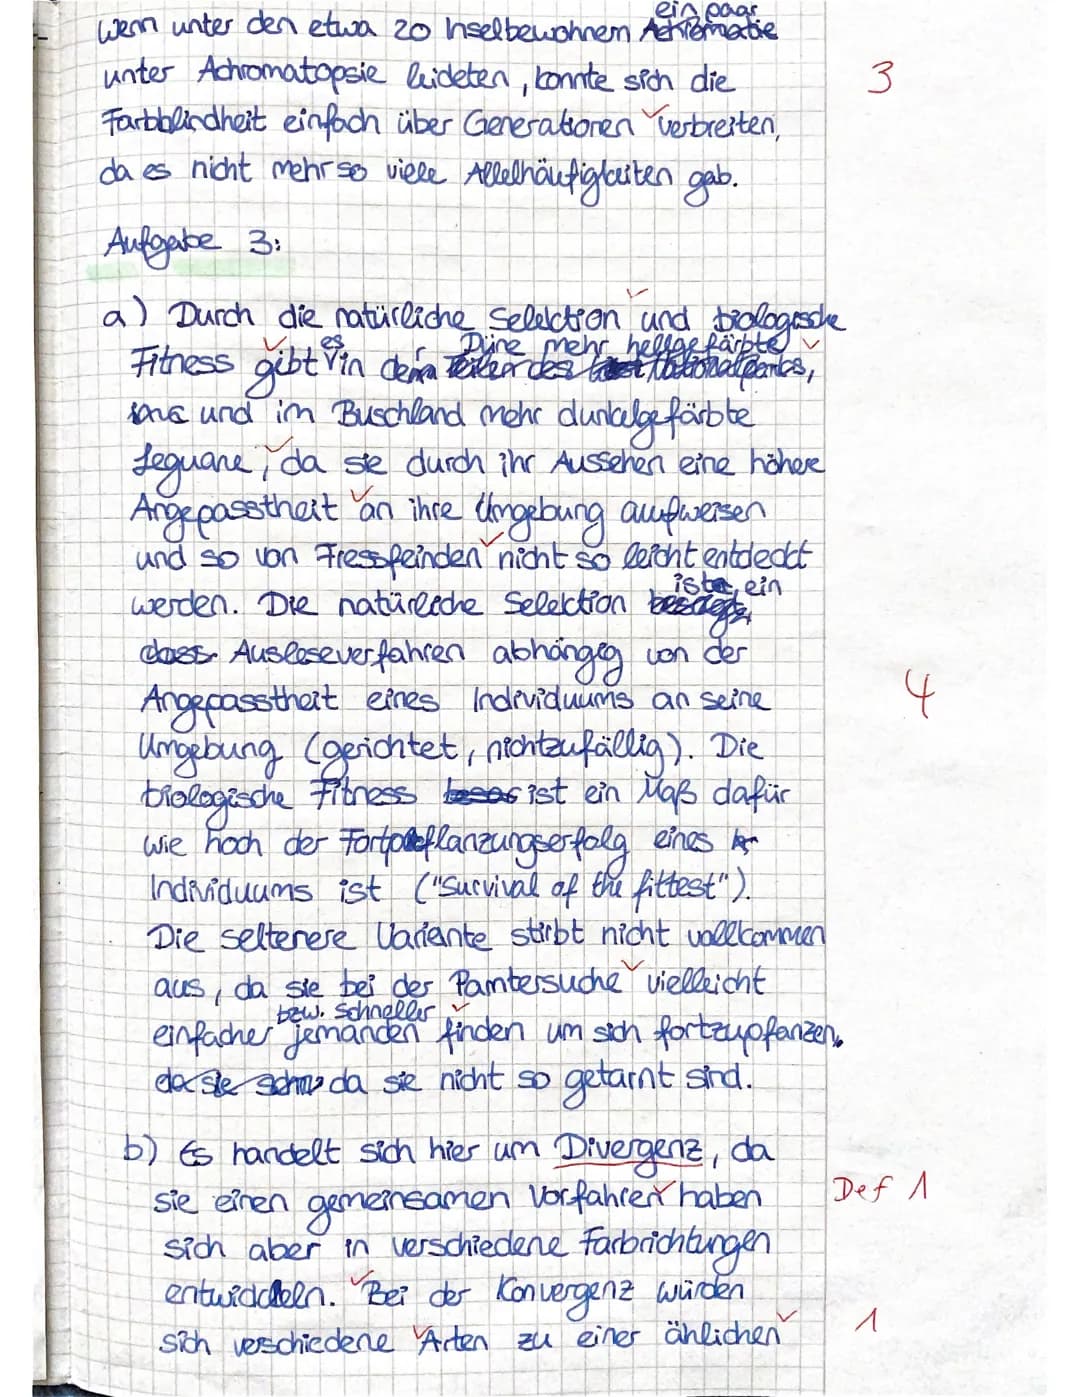 wenn unter den etwa 20 Inselbewohnern ein paar
unter Achromatopsie leideten, konnte sich die
3
Farbblindheit einfach über Generationen verbreiten,
da es nicht mehr so viele Allelhäufigkeiten gab.
Aufgabe 3:
a) Durch die natürliche Selektion und biologische
Fitness gibt es in der Düne mehr hellgefärbte
und im Buschland mehr dunkelgefärbte
Leguane, da sie durch ihr Aussehen eine höhere
Angepasstheit an ihre Umgebung aufweisen
und so von Fressfeinden nicht so leicht entdeckt
werden. Die natürliche Selektion ist ein
Ausleseverfahren abhängig von der
Angepasstheit eines Individuums an seine
4
Umgebung (gerichtet, nichtzufällig). Die
biologische Fitness ist ein Maß dafür
wie hoch der Fortpflanzungserfolg eines
Individuums ist ("Survival of the fittest").
Die seltenere Variante stirbt nicht vollkommen
aus, da sie bei der Parntersuche vielleicht
einfacher bzw. schneller jemanden finden um sich fortzupfanzen,
da sie nicht so getarnt sind.
b) Es handelt sich hier um Divergenz, da
sie einen gemeinsamen Vorfahren haben
Def 1
sich aber in verschiedene Farbrichtungen
entwickeln. Bei der Konvergenz würden
sich verschiedene Arten zu einer ählichen
1